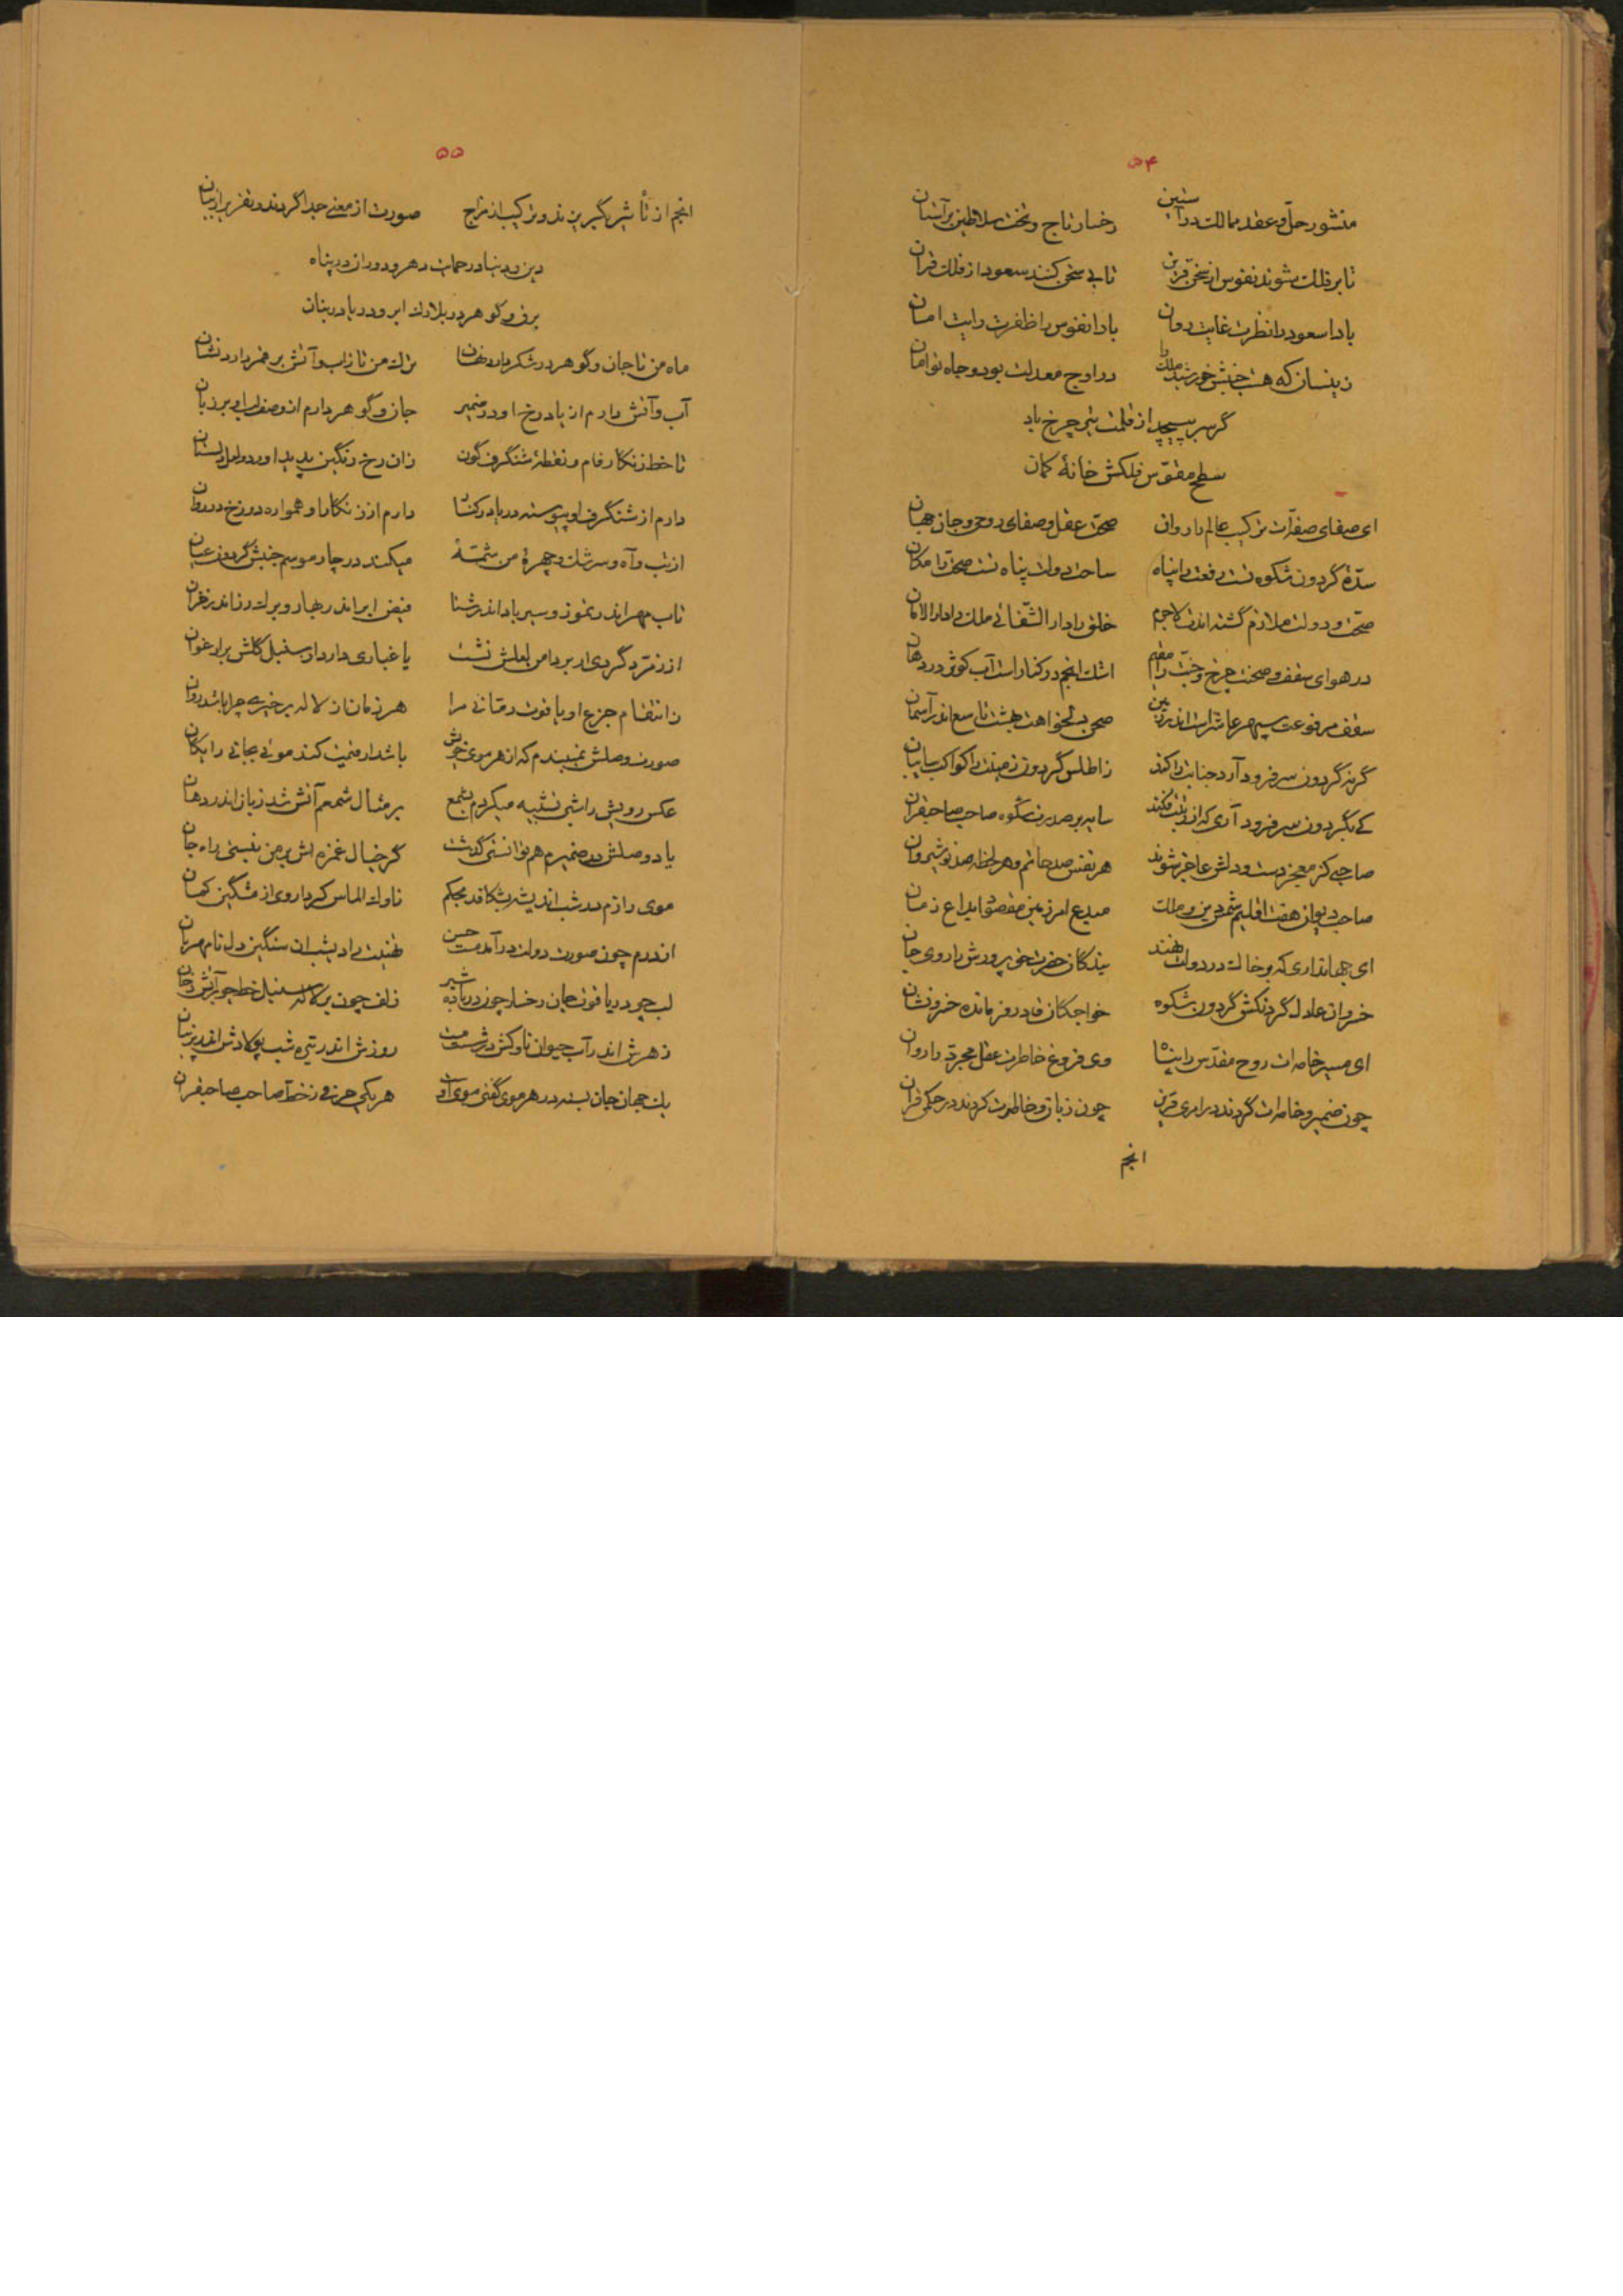 ۵۴
منشور حل و عقد ممالک در آستین رخسار تاج و تخت سلاطین بر آستان
تا بر فلک شوند نفوس از سخن قرین تا بی سخن کنند سعود از فلک قران
بادا سعود را نظرت غایت روان بادا نفوس را ظفرت رایت امان
زینسان که هست جنبش خورشید ملک در اوج معدلت بود و جاه تو امان
گر سر بپیچد از قلمت تیر چرخ باد
سطح مقوس فلکش خانهٔ کمان
ای صفای صفه‌ات ترکیب عالم را روان صحن عقل و صفای روح و جان جهان
سدهٔ گردون شکوه تست رفعت را پناه ساحت دولت پناه تست صحت را مکان
صحت و دولت ملازم گشته اندت لاجرم خلق را دار الشفائی ملک را دار الامان
در هوای سقف و صحنت چرخ و جنت را مقیم اشک انجم در کنار است آب کوثر در دهان
سقف مرفوعت سپهر عاشر است اندر زمین صحن دلخواهت بهشت تاسع اندر آسمان
گر نه گردون سر فرود آرد جنابت را کند ز اطلس گردون زمینت را کواکب سایبان
کی بگردون سر فرود آری که از رتبت فکند سایه بر صدرت شکوه صاحب صاحبقران
صاحبی کز معجز دست و دلش عاجز شوند هر نفس صد حاتم و هر لحظه صد نوشیروان
صاحب دیوان هفت اقلیم شمس دین و ملک مبدع امر زمین مقصود ابداع زمان
ای جهانداری که بوخالت در دولت نهند بندگان حضرت حق پرورش را روی جان
خسروان عادل گردنکش گردون شکوه خواجگان قادر فرمانده خسرو نشان
ای مسیر خامه‌ات روح مقدس را پناه وی فروغ خاطرت عقل مجرد را روان
چون ضمیر و خامه‌ات گردند در امری قرین چون زبان و خاطرت کردند در حکمی قران
انجم
۵۵
انجم از تأثیر بگریزند و ترکیب از مزاج صورت از معنی جدا گردند و تقریر از بیان
دین و دنیا در حمایت دهر و دوران در پناه
برق و گوهر در بلارک ابر و دریا در بنان
ماه من تا جان و گوهر در شکر دارد نهان ترک من تا ز آب و آتش بر قمر دارد نشان
آب و آتش دارم از یاد رخ او در ضمیر جان و گوهر دارم از وصف لب او بر زبان
تا خط زنگار فام و نقطهٔ شنگرف گون زان رخ رنگین پدید آورد و لعل دلستان
دارم از شنگرف او پیوسته دریا در کنار دارم از زنگار او همواره دوزخ در روان
از تب و آه و سرشک و چهرهٔ من شمهٔ میکند در چار موسم جنبش گردون عیان
تاب مهر اندر تموز و سیر باد اندر شتا فیض ابر اندر بهار و برگ رز اندر خزان
از زمرد گردی ار بر دامن لعلش نشست یا غباری دارد از سنبل گلش بر ارغوان
ز انتقام جزع او یاقوت رمانی مرا هر زمان از لاله بر خیری چرا باشد روان
صورت وصلش نمیبندم که از هر موی خویش باشد ار قیمت کند موئی بجانی رایگان
عکس رویش را شبی تشبیه میکردم بشمع بر مثال شمعم آتش شد زبان اندر دهان
یاد وصلش در ضمیرم هم توانستی گذشت گر خیال غمزه‌اش بر من نبستی راه جان
موی رازم در شب اندیشه بشکافد بحکم ناوک الماس کردار وی از مشگین کمان
اندرم چون صورت دولت در آمد مست حسن تهنیت را دیشب آن سنگین دل نامهربان
لب چو در یاقوت جان رخسار چون در باده شیر زلف چون بر لاله سنبل خط چو آتش دخان
زهرش اندر آب حیوان ناوکش در شست مست روزش اندر تیره شب پولادش اندر پرنیان
یک جهان جان بسته در هر موی گفتی موی او هر یکی حرفی ز خط صاحب صاحبقران